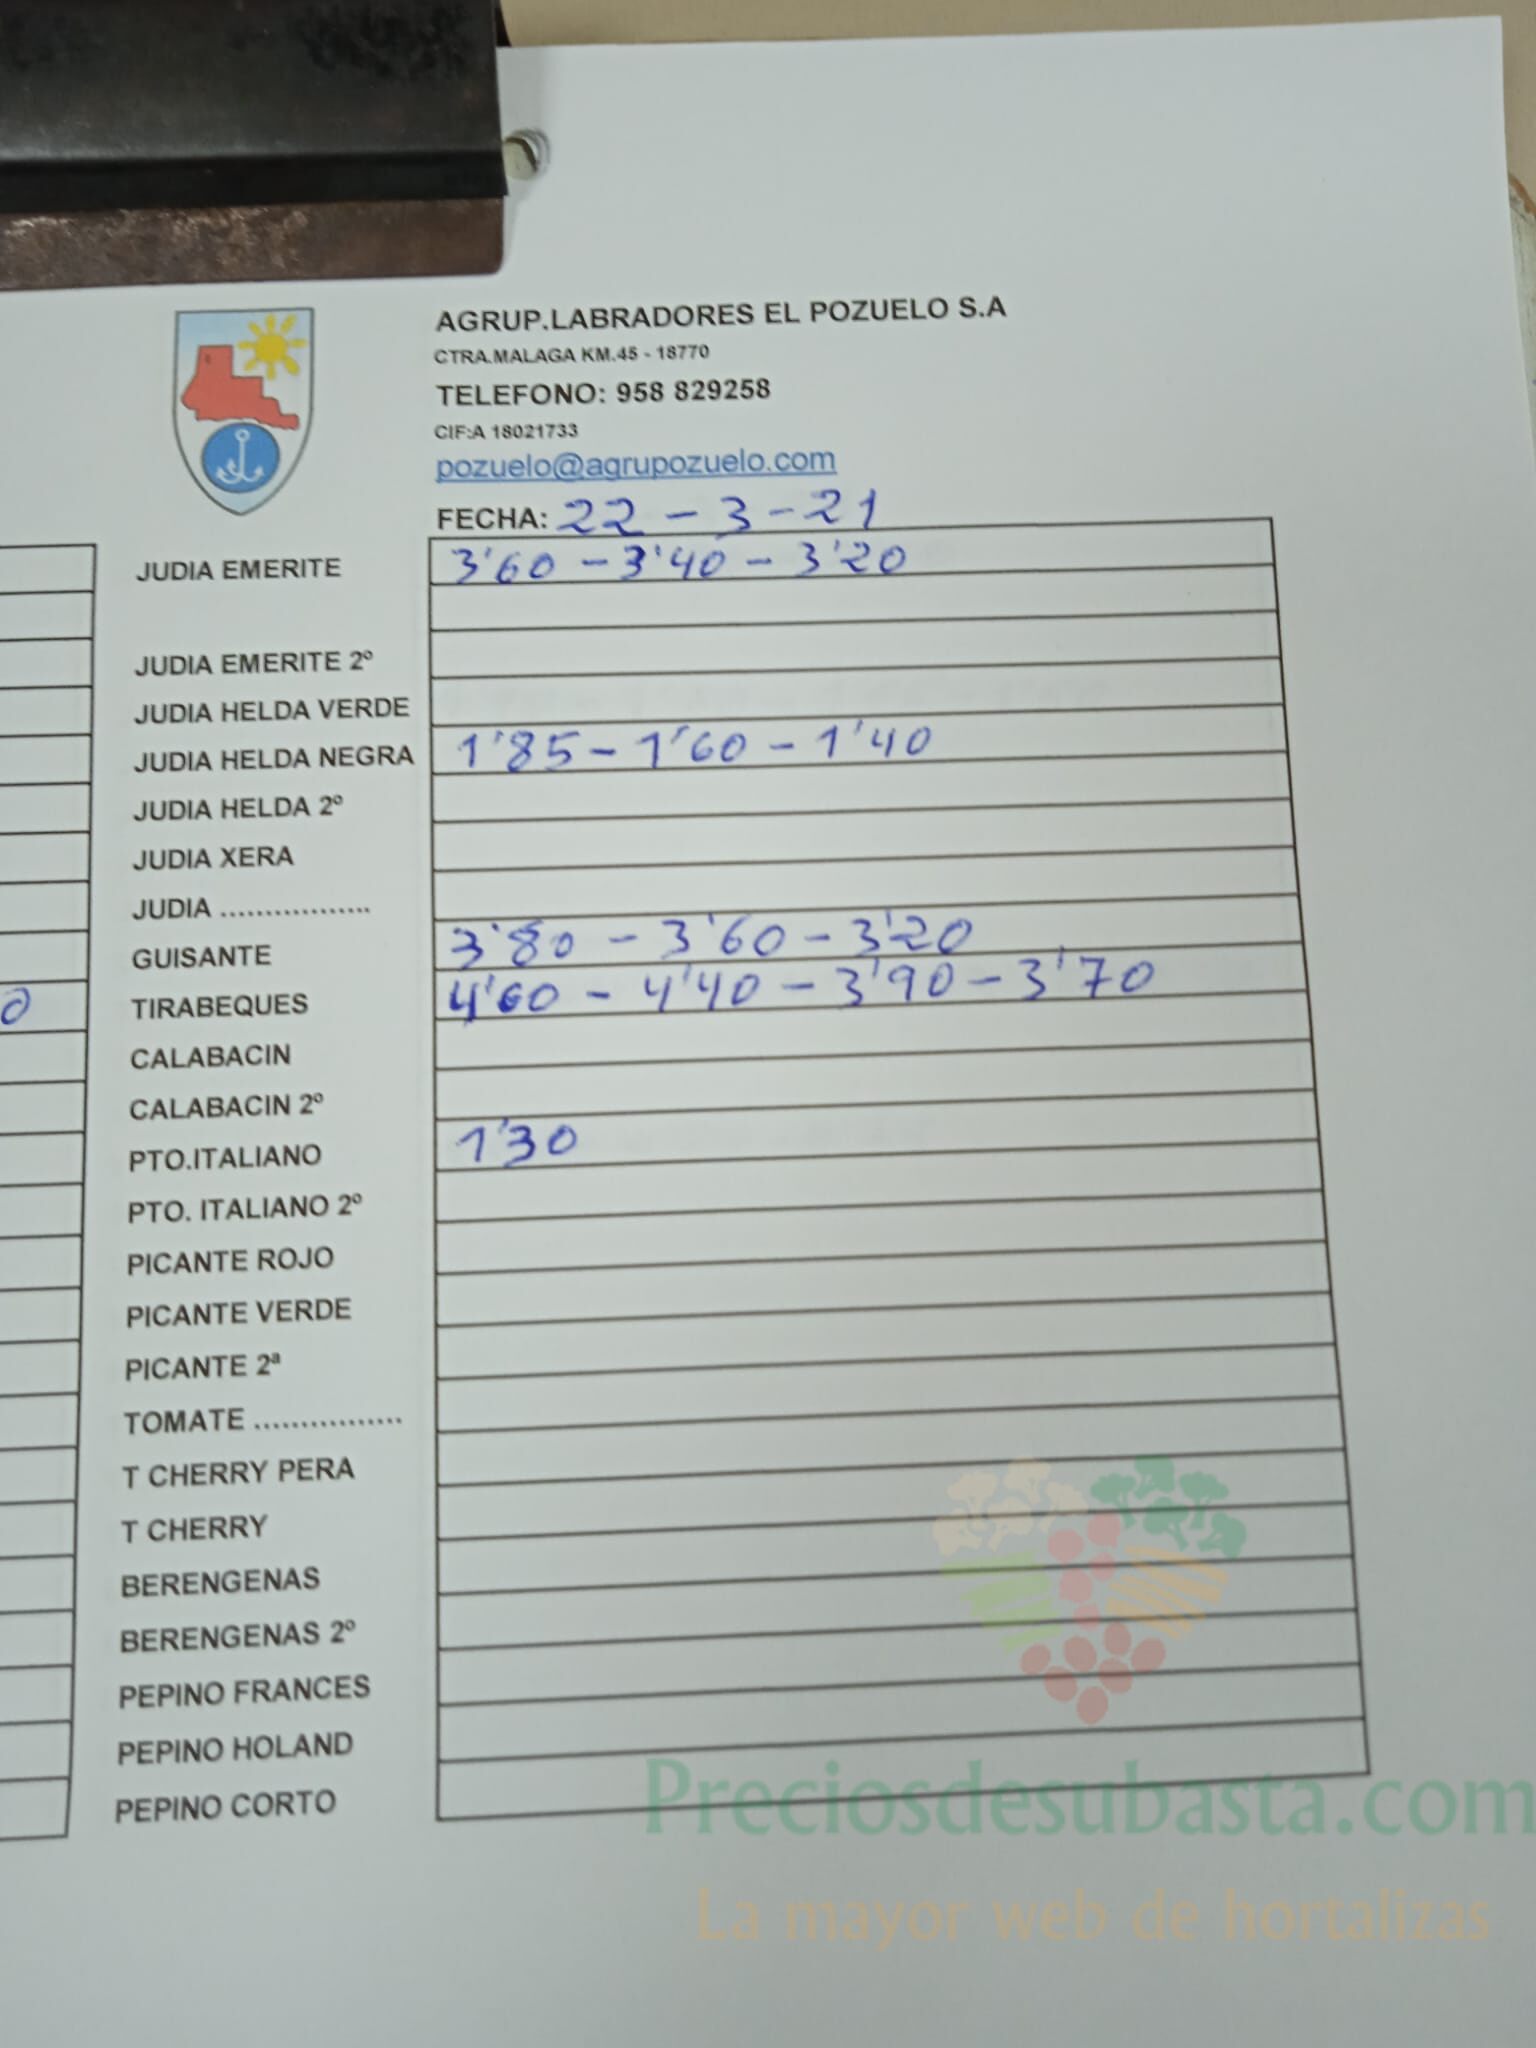 AGRUP.LABRADORES EL POZUELO S.A
CTRA.MALAGA KM.45 - 18770
TELEFONO: 958 829258
CIF:A 18021733
pozuelo@agrupozuelo.com
FECHA: 22-3-21
JUDIA EMERITE 3'60 - 3'40 - 3'20
JUDIA EMERITE 2º
JUDIA HELDA VERDE
JUDIA HELDA NEGRA 1'85 - 1'60 - 1'40
JUDIA HELDA 2º
JUDIA XERA
JUDIA .................
GUISANTE 3'80 - 3'60 - 3'20
0 TIRABEQUES 4'60 - 4'40 - 3'90 - 3'70
CALABACIN
CALABACIN 2º
PTO.ITALIANO 1'30
PTO. ITALIANO 2º
PICANTE ROJO
PICANTE VERDE
PICANTE 2ª
TOMATE ................
T CHERRY PERA
T CHERRY
BERENGENAS
BERENGENAS 2º
PEPINO FRANCES
PEPINO HOLAND
PEPINO CORTO
Preciosdesubasta.com
La mayor web de hortalizas